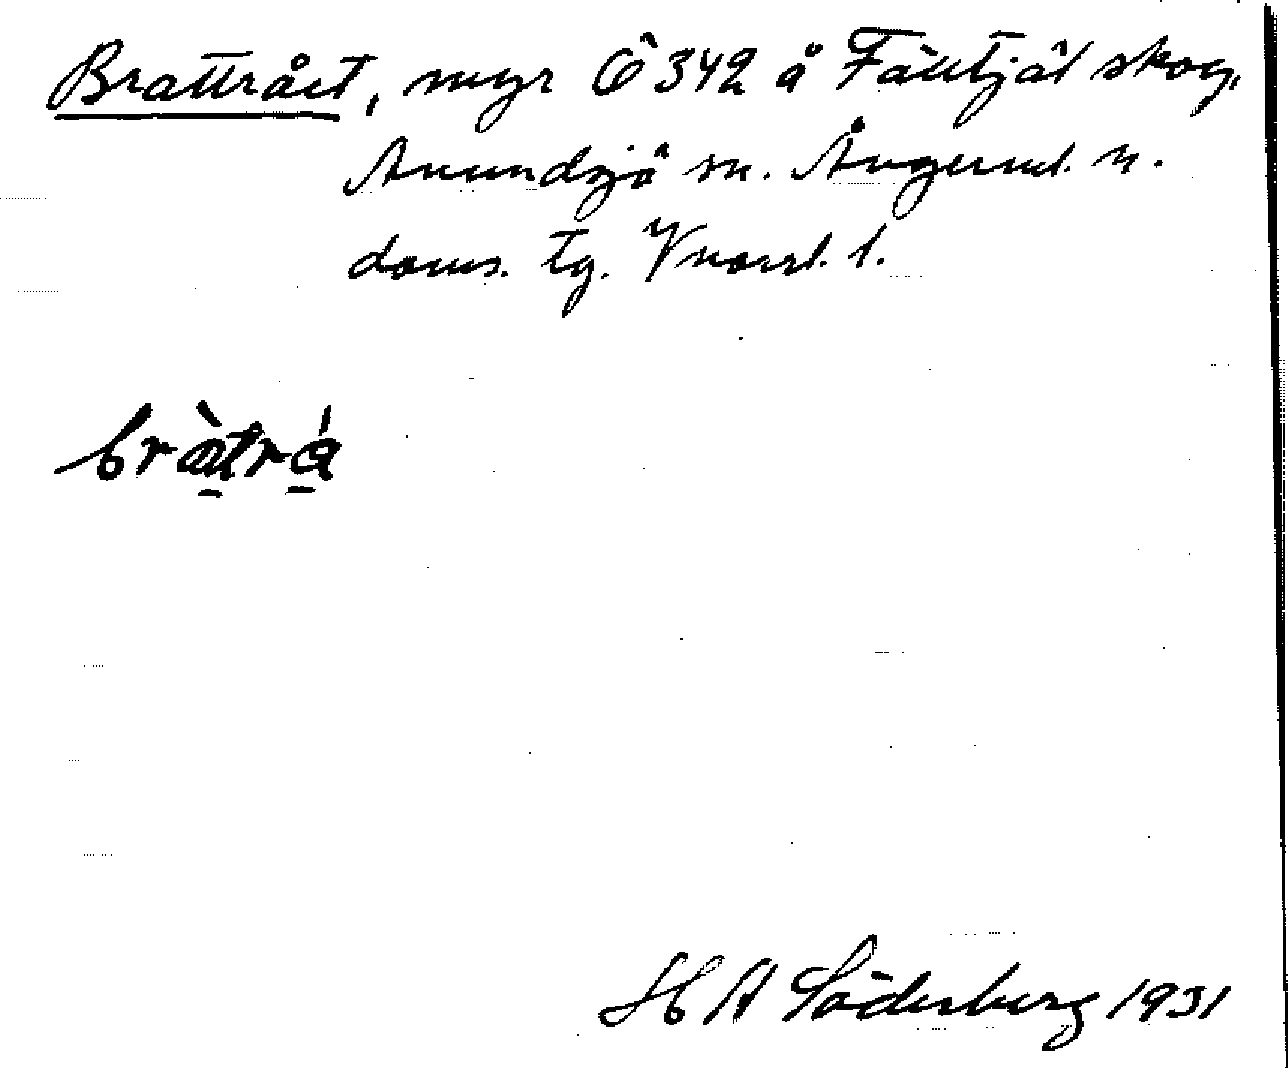 Brattrået, myr Ö 342 å Fälltjäl skog,
Anundsjö sn. Ångerml. n.
doms. tg. Vnorrl. l.
bràtrá
H A Söderberg 1931